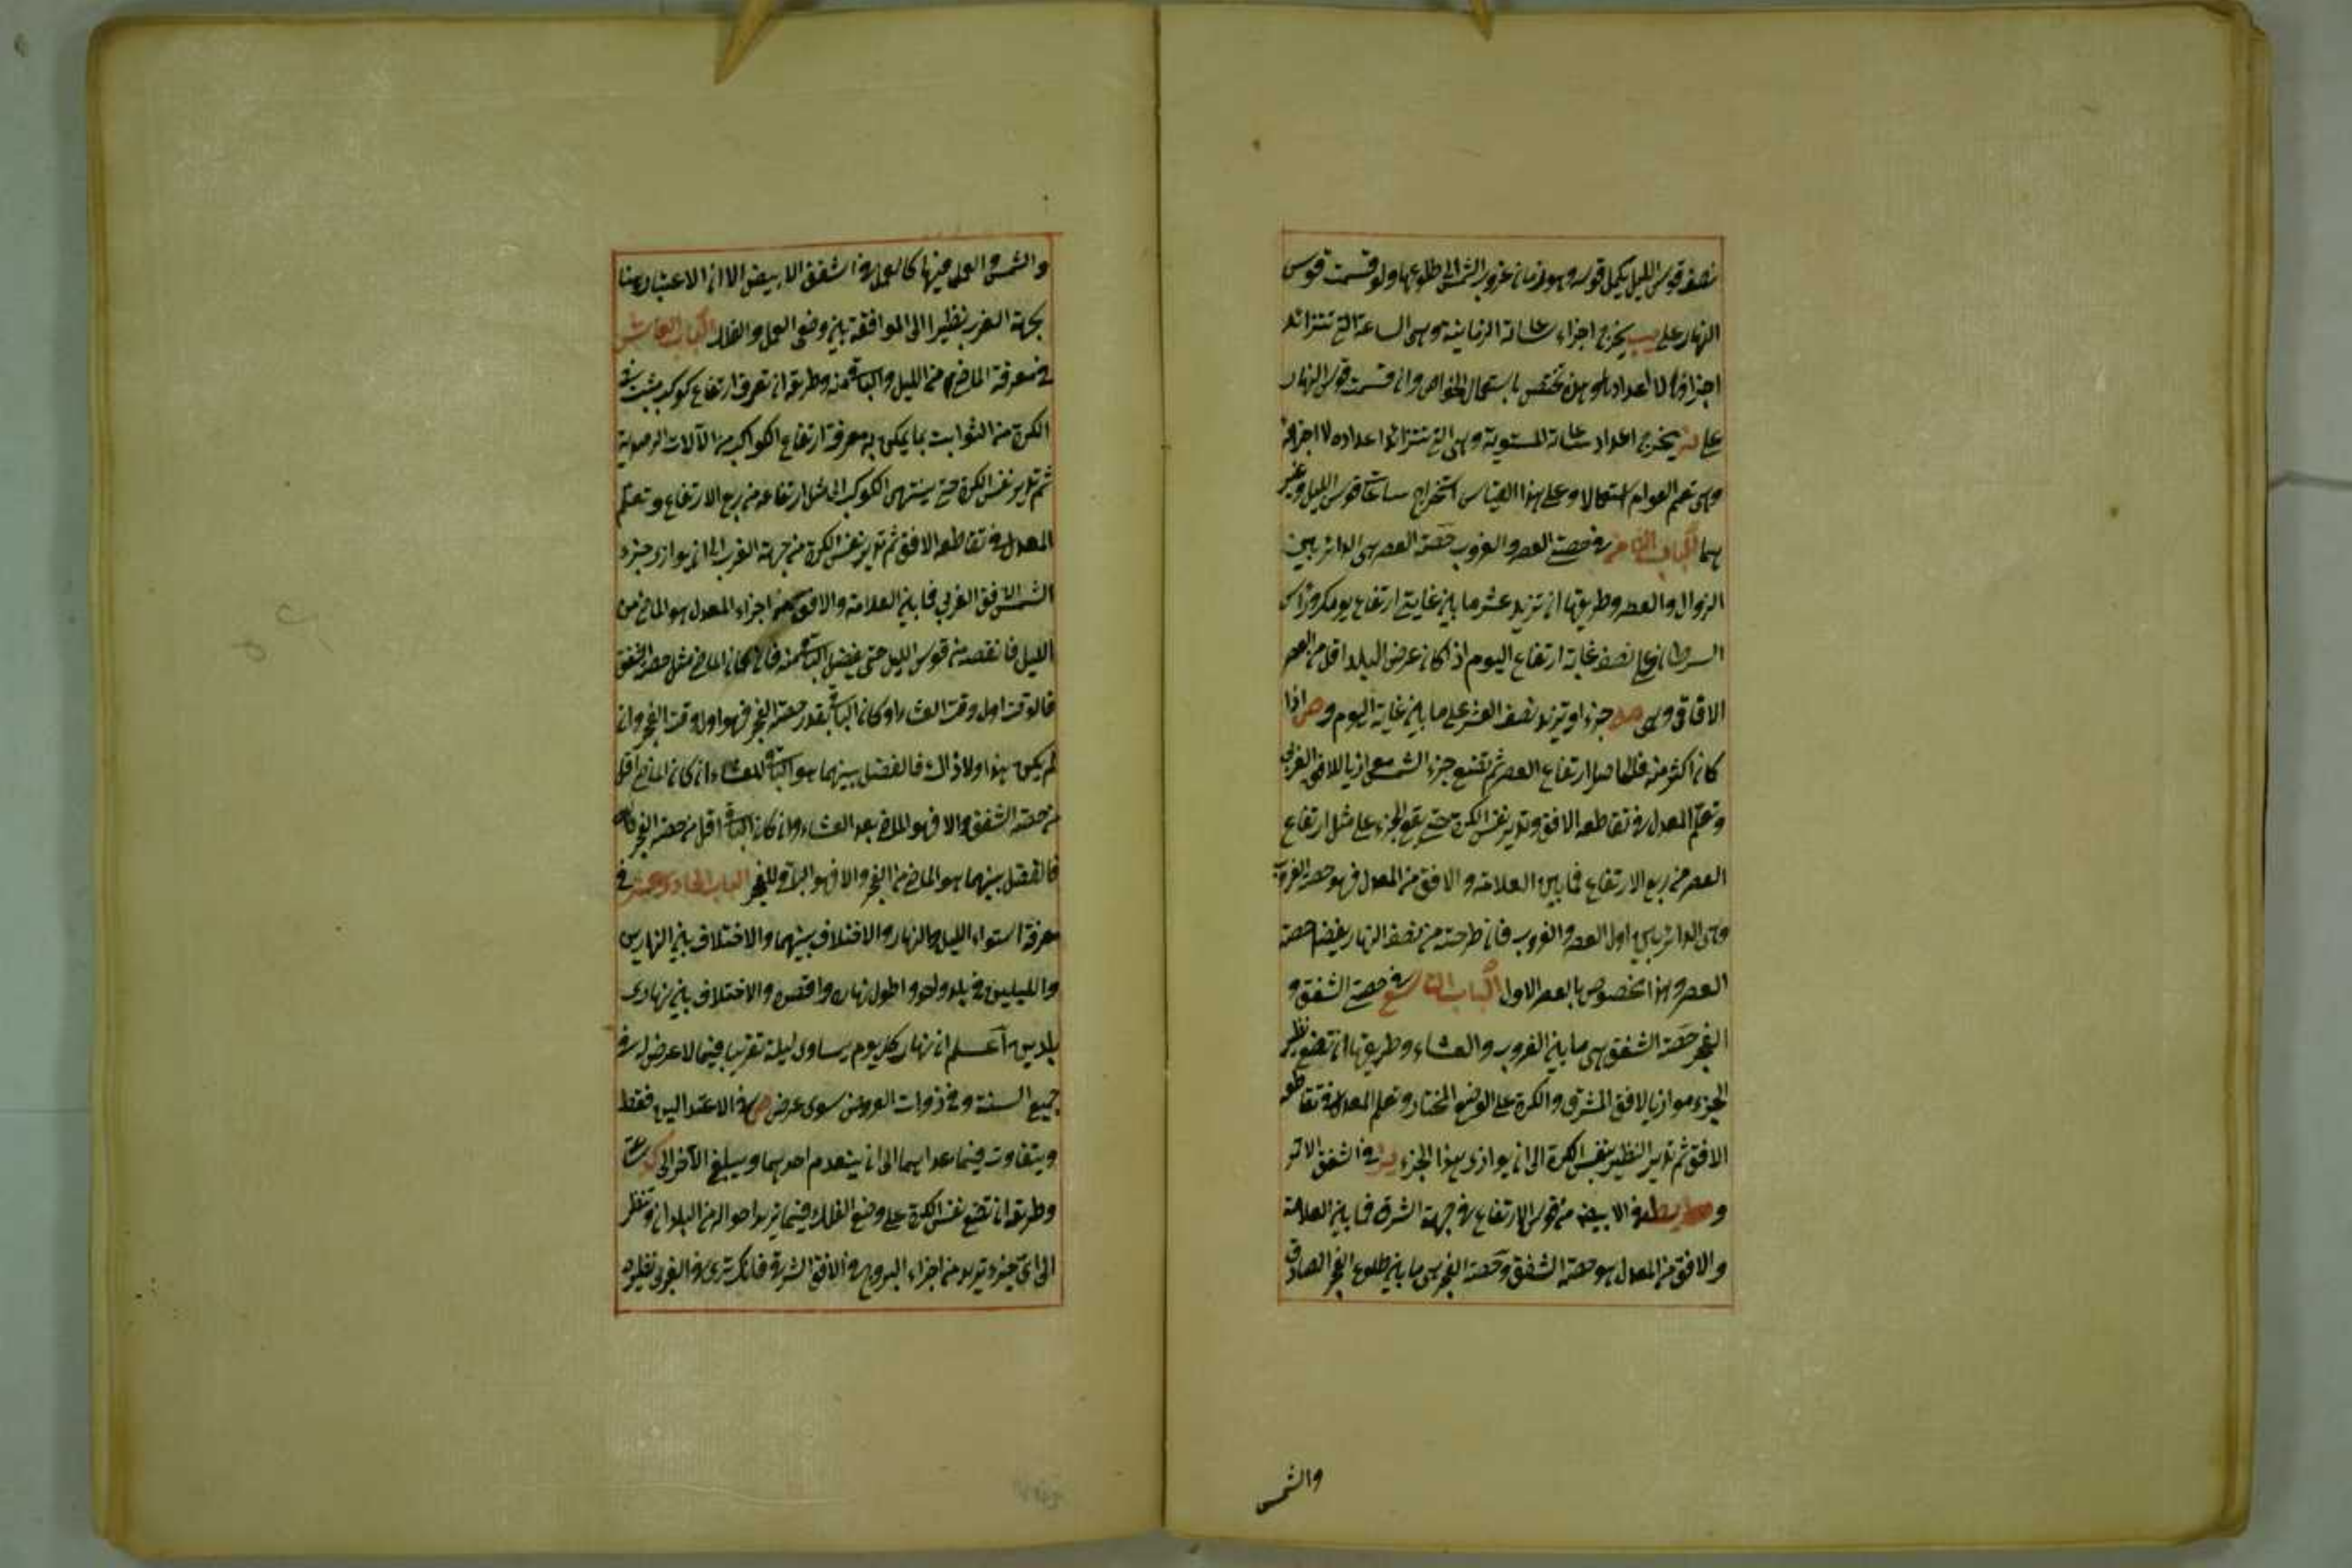 نصف قوس الليل يكمل قوسه وهو زمان غروب الشمس الى طلوعها ولو قسمت قوس
النهار على يب يخرج اجزاء ساعاته الزمانية وهى الساعة التى تتزائد
اجزاؤها لا اعدادها وهذه تختص باستعمال الخواص وان قسمت قوس النهار
على يه يخرج اعداد ساعاته المستوية وهى التى تتزائد اعداده لا اجزاؤه
وهى تعم العوام استعمالا وعلى هذا القياس استخراج ساعات قوس الليل وغير
هما الباب الثامن فى حصتى العصر والغروب حصة العصر هى الدائر بين
الزوال والعصر وطريقها ان تزيد عشر ما بين غايتى ارتفاع يومك وراس
السرطان على نصف غاية ارتفاع اليوم اذا كان عرض البلد اقل من العرض
الافاقى وهى جزء او تزيد نصف العشر على ما بين غاية اليوم وص اذا
كان اكثر منه فالحاصل ارتفاع العصر ثم تضع جزء الشمس موازيا للافق الغربى
وتعلم المعدل فى تقاطعه الافق وتدير نفس الكرة حتى يقع الجزء على مثل ارتفاع
العصر من ربع الارتفاع فما بين العلامة والافق من المعدل فهو حصة الغروب
وهى الدائر بين اول العصر والغروب فان طرحته من نصف النهار يفضل حصة
العصر وهذا مخصوص بالعصر الاول الباب التاسع فى حصتى الشفق و
الفجر حصة الشفق هى ما بين الغروب والعشاء وطريقها ان تضع نظير
الجزء موازيا لافق المشرق والكرة على الوضع المختار وتعلم المعدل فى تقاطعه
الافق ثم تدير النظير بنفس الكرة الى ان يوازى هذا الجزء فى الشفق الاحمر
و فى الابيض من قوس الارتفاع فى جهة الشرق فما بين العلامة
والافق من المعدل هو حصة الشفق وحصة الفجر هى ما بين طلوع الفجر الصادق
والشمس
والشمس والعمل فيها كالعمل فى الشفق الابيض الا ان الاعتبار هنا
بجهة الغرب نظيرا الى الموافقة بين وضعى العمل والفلك الباب العاشر
فى معرفة الماضى من الليل والباقى منه وطريقه ان تعرف ارتفاع كوكب مثبت فى
الكرة من الثوابت بما يمكن به معرفة ارتفاع الكواكب من الآلات الرصدية
ثم تدير نفس الكرة حتى ينتهى الكوكب الى مثل ارتفاعه من ربع الارتفاع وتعلم
المعدل فى تقاطعه الافق ثم تدير نفس الكرة من جهة الغرب الى ان يوازى جزء
الشمس الافق الغربى فما بين العلامة والافق من اجزاء المعدل هو الماضى من
الليل فانقصه من قوس الليل حتى يفضل الباقى منه فان كان الماضى مثل حصة الشفق
فالوقت اول وقت العشاء او كان الباقى بقدر حصة الفجر فهو اول وقت الفجر وان
لم يكن هذا ولا ذاك فالفضل بينهما هو الباقى للعشاء ان كان الماضى اقل
من حصة الشفق والا فهو الماضى بعد العشاء وان كان الباقى اقل من حصة الفجر
فالفضل بينهما هو الماضى من الفجر والا فهو الباقى للفجر الباب الحادى عشر فى
معرفة استواء الليل والنهار والاختلاف بينهما والاختلاف بين النهارين
والليلين فى بلد واحد واطول نهاره واقصره والاختلاف بين نهارى
بلدين اعلم ان نهار كل يوم يساوى ليلة تقريبا فيما لا عرض له فى
جميع السنة وفى ذوات العروض سوى عرض ص فى الاعتدالين فقط
ويتفاوت فيما عداهما الى ان ينعدم احدهما ويبلغ الآخر الى كد ساعة
وطريقه ان تضع نفس الكرة على وضع الفلك فيما تريد احواله من البلدان وتنظر
الى اى جزء تريد من اجزاء البروج فى الافق الشرقى فانك ترى فى الغربى نظيره